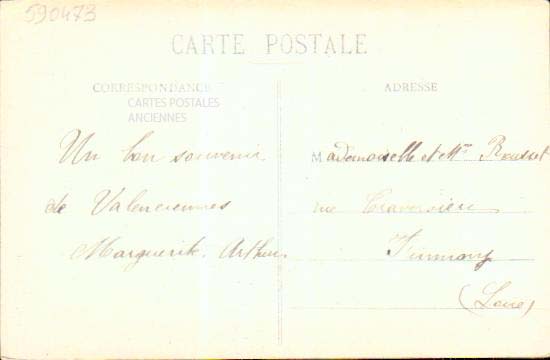 590473
CARTE POSTALE
CORRESPONDANCE
CARTES POSTALES
ANCIENNES
ADRESSE
Un bon souvenir
de Valenciennes
Marguerite. Arthur
Mademoiselle et Mr Rousset
rue Traversière
Firminy
(Loire)